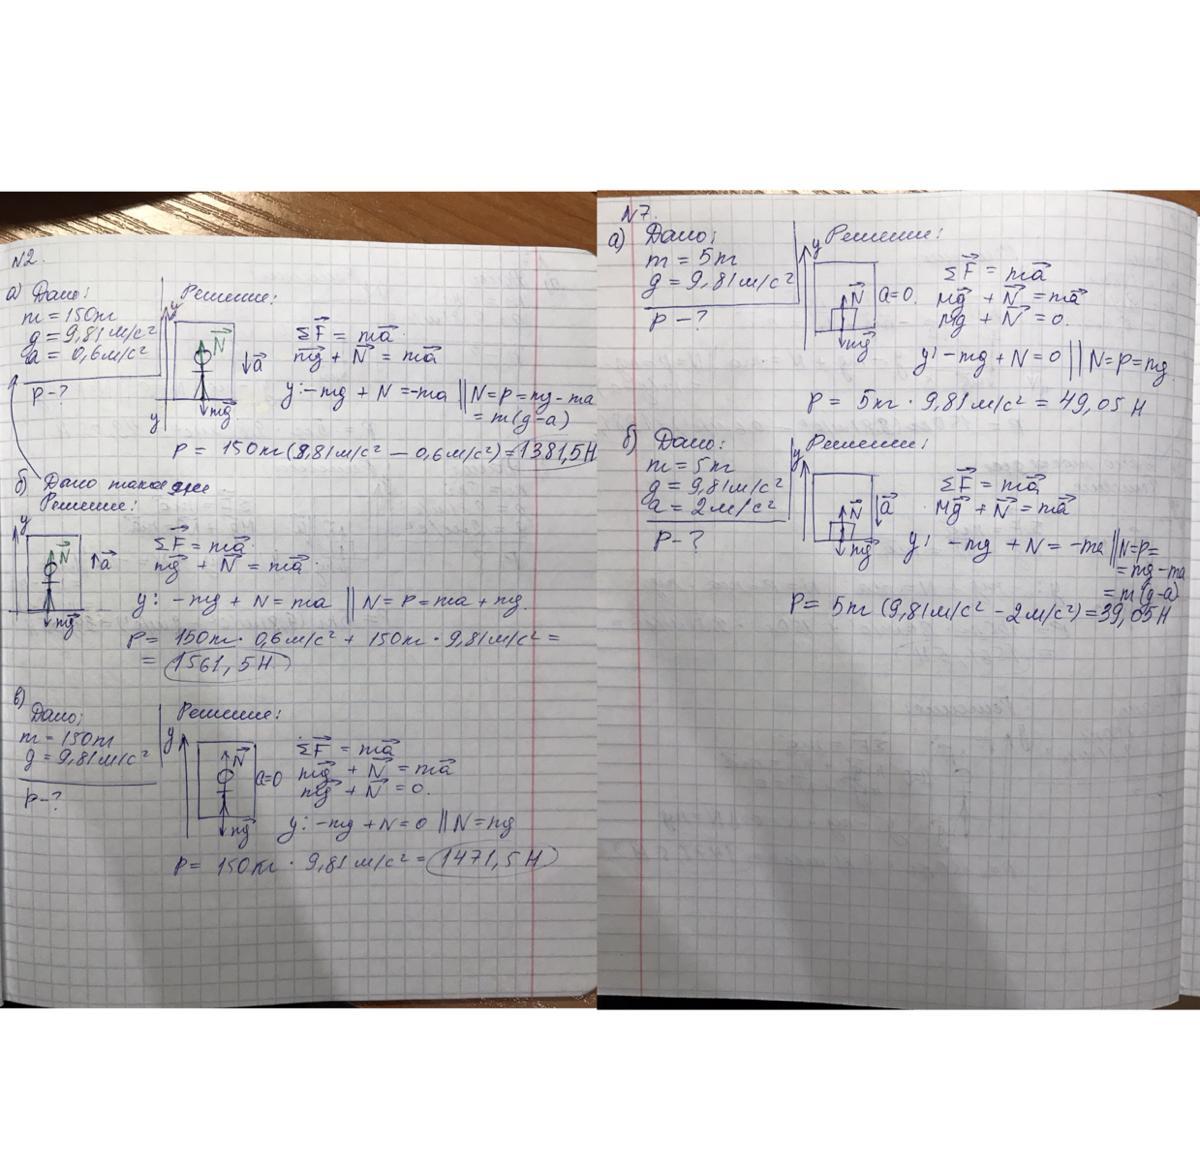 N2.
а) Дано:
m = 150кг
g = 9,81м/с²
a = 0,6м/с²
P-?
y
Решение:
N⃗
↓a⃗
mg⃗
y
ΣF⃗ = ma⃗
mg⃗ + N⃗ = ma⃗
y: -mg + N = -ma || N = P = mg - ma
= m(g-a)
P = 150кг(9,81м/с² - 0,6м/с²) = 1381,5Н
б) Дано такое же
Решение:
y
N⃗
↑a⃗
mg⃗
ΣF⃗ = ma⃗
mg⃗ + N⃗ = ma⃗
y: -mg + N = ma || N = P = ma + mg.
P = 150кг · 0,6м/с² + 150кг · 9,81м/с² =
= 1561,5Н
в)
Дано:
m = 150кг
g = 9,81м/с²
P-?
Решение:
y
N⃗
a=0
mg⃗
ΣF⃗ = ma⃗
mg⃗ + N⃗ = ma⃗
mg⃗ + N⃗ = 0.
y: -mg + N = 0 || N = mg
P = 150кг · 9,81м/с² = 1471,5Н
N7.
а) Дано:
m = 5кг
g = 9,81м/с²
P-?
y
Решение:
N⃗
a=0.
mg⃗
ΣF⃗ = ma⃗
Mg⃗ + N⃗ = ma⃗
Mg⃗ + N⃗ = 0.
y: -mg + N = 0 || N = P = mg
P = 5кг · 9,81м/с² = 49,05Н
б) Дано:
m = 5кг
g = 9,81м/с²
a = 2м/с²
P-?
y
Решение:
N⃗
↓a⃗
mg⃗
ΣF⃗ = ma⃗
Mg⃗ + N⃗ = ma⃗
y: -mg + N = -ma || N = P =
= mg - ma
= m(g-a)
P = 5кг (9,81м/с² - 2м/с²) = 39,05Н